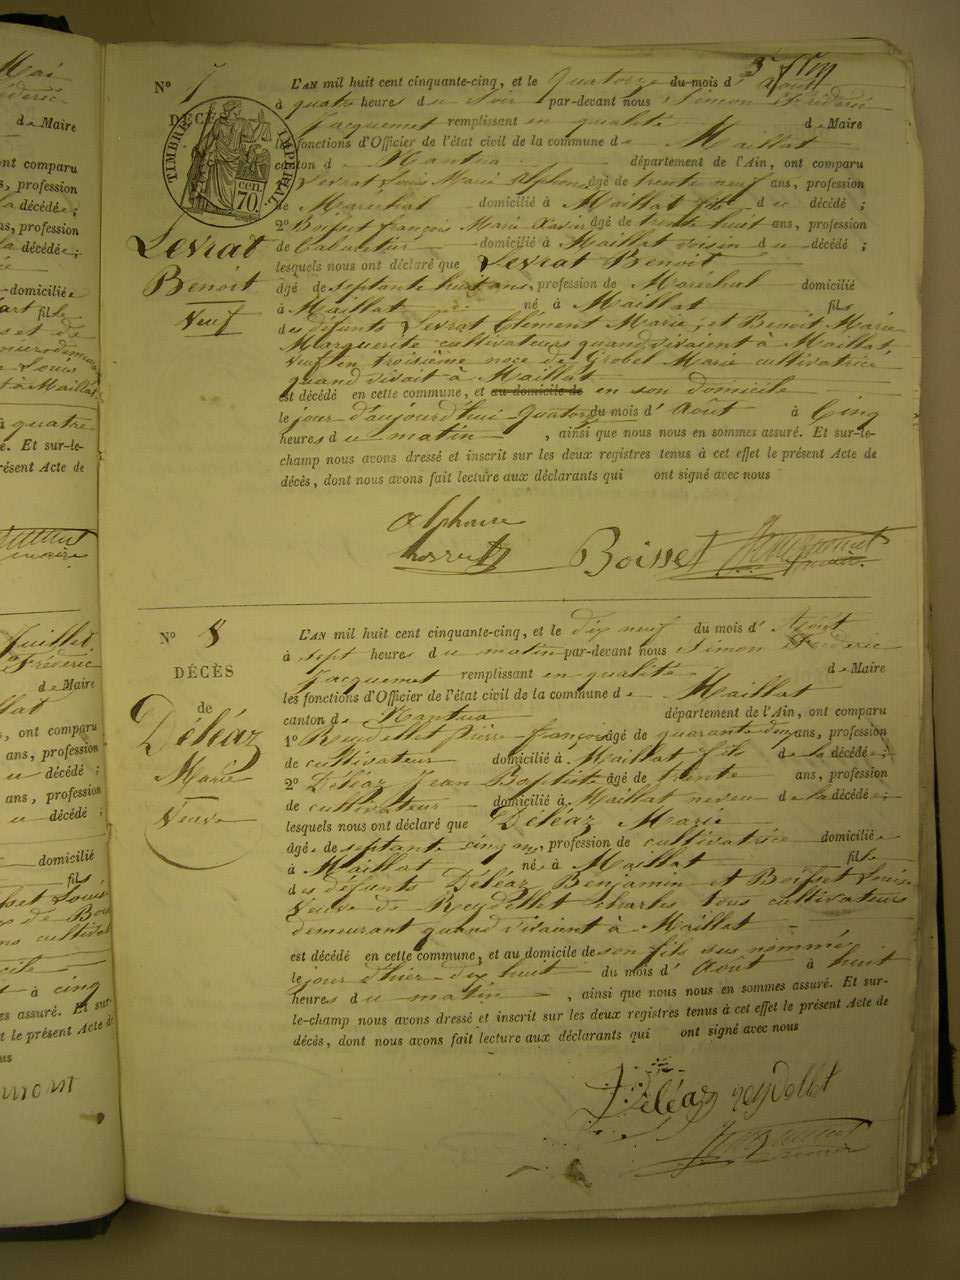 N° 7
DÉCÈS
TIMBRE IMPÉRIAL
70 cen.
Levrat
Benoit
Veuf
L'AN mil huit cent cinquante-cinq, et le Quatorze du mois d' Août
à quatre heures du Soir par-devant nous Simon Frédéric
Jacquemet remplissant en qualité de Maire
les fonctions d'Officier de l'état civil de la commune de Maillat
canton de Nantua département de l'Ain, ont comparu
Levrat Louis Marie Alphonse âgé de trente neuf ans, profession
de Maréchal domicilié à Maillat fils du décédé ;
2° Boisset françois Marie Xavier âgé de trente huit ans, profession
de Cabaretier domicilié à Maillat voisin du décédé ;
lesquels nous ont déclaré que Levrat Benoit
âgé de septante huit ans, profession de Maréchal domicilié
à Maillat né à Maillat fils
des défunts Levrat Clément Marie, et Benoit Marie
Marguerite cultivateurs quand vivaient à Maillat,
veuf en troisième noce de Grobel Marie cultivatrice
quand vivait à Maillat
est décédé en cette commune, et au domicile de en son domicile
le jour d'aujourd'hui quatorze du mois d' Août à Cinq
heures du matin , ainsi que nous nous en sommes assuré. Et sur-le-
champ nous avons dressé et inscrit sur les deux registres tenus à cet effet le présent Acte de
décès, dont nous avons fait lecture aux déclarants qui ont signé avec nous
alphonse
Boisset
N° 8
DÉCÈS
de
Déléaz
Marie
Veuve
L'AN mil huit cent cinquante-cinq, et le dix neuf du mois d' Août
à sept heures du matin par-devant nous Simon Frédéric
Jacquemet remplissant en qualité de Maire
les fonctions d'Officier de l'état civil de la commune de Maillat
canton de Nantua département de l'Ain, ont comparu
1° Reydellet Pierre françois âgé de quarante deux ans, profession
de cultivateur domicilié à Maillat fils de la décédée ;
2° Déléaz Jean Baptiste âgé de trente ans, profession
de cultivateur domicilié à Maillat neveu de la décédée ;
lesquels nous ont déclaré que Déléaz Marie
âgée de septante cinq ans, profession de cultivatrice domiciliée
à Maillat née à Maillat fille
des défunts Déléaz Benjamin et Boisset Louise
Veuve de Reydellet Charles tous cultivateurs
demeurant quand vivaient à Maillat
est décédé en cette commune, et au domicile de son fils sus nommé
le jour d'hier dix huit du mois d' Août à huit
heures du matin , ainsi que nous nous en sommes assuré. Et sur-
le-champ nous avons dressé et inscrit sur les deux registres tenus à cet effet le présent Acte de
décès, dont nous avons fait lecture aux déclarants qui ont signé avec nous
Déléaz reydellet